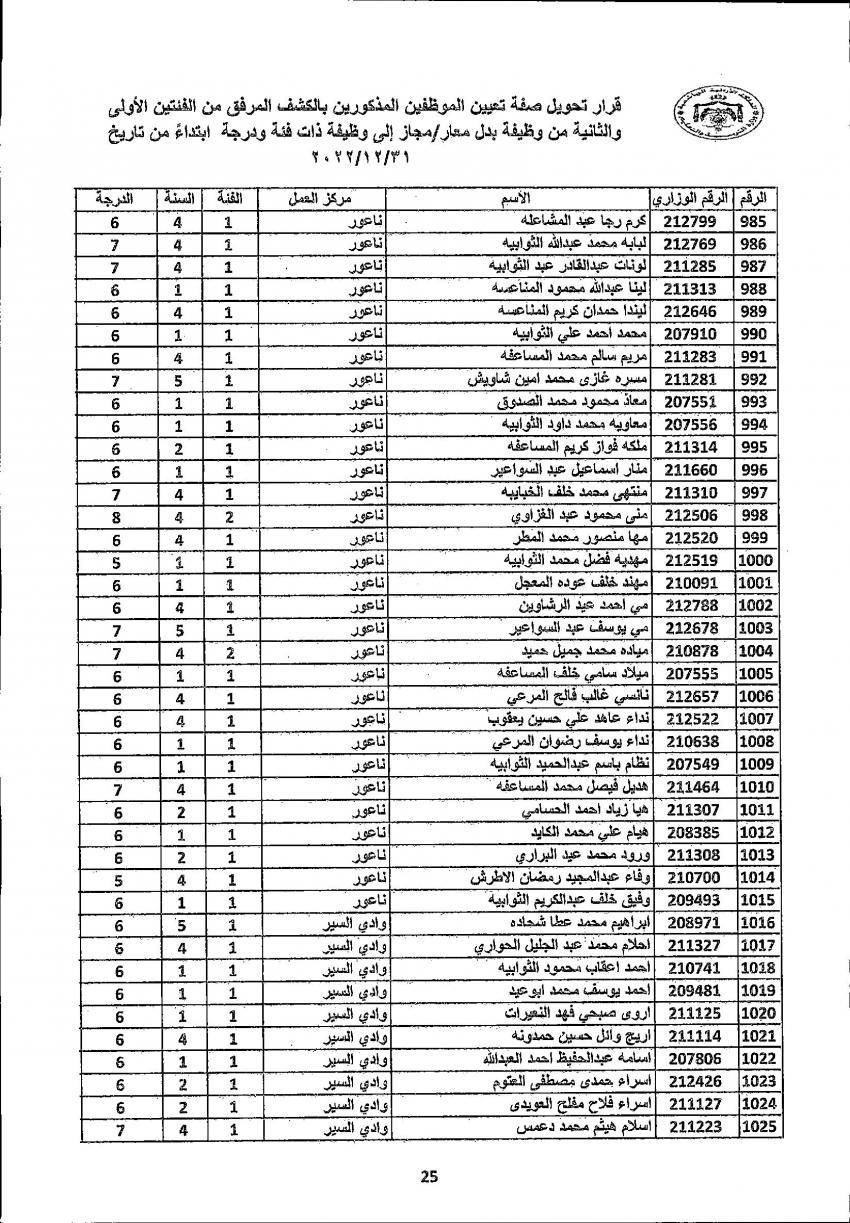 قرار تحويل صفة تعيين الموظفين المذكورين بالكشف المرفق من الفئتين الأولى
والثانية من وظيفة بدل معار/مجاز إلى وظيفة ذات فئة ودرجة ابتداءً من تاريخ
٢٠٢٢/١٢/٣١
الرقم الرقم الوزاري الأسم مركز العمل الفئة السنة الدرجة
985 212799 كرم رجا عبد المشاعله ناعور 1 4 6
986 212769 لبابه محمد عبدالله الثوابيه ناعور 1 4 7
987 211285 لونات عبدالقادر عبد الثوابيه ناعور 1 4 7
988 211313 لينا عبدالله محمود المناعسه ناعور 1 1 6
989 212646 ليندا حمدان كريم المناعسه ناعور 1 4 6
990 207910 محمد احمد علي الثوابيه ناعور 1 1 6
991 211283 مريم سالم محمد المساعفه ناعور 1 4 6
992 211281 مسره غازى محمد امين شاويش ناعور 1 5 7
993 207551 معاذ محمود محمد الصدوق ناعور 1 1 6
994 207556 معاويه محمد داود الثوابيه ناعور 1 1 6
995 211314 ملكه فواز كريم المساعفه ناعور 1 2 6
996 211660 منار اسماعيل عبد السواعير ناعور 1 1 6
997 211310 منتهى محمد خلف الخبايبه ناعور 1 4 7
998 212506 منى محمود عبد الغزاوي ناعور 2 4 8
999 212520 مها منصور محمد المطر ناعور 1 4 6
1000 212519 مهديه فضل محمد الثوابيه ناعور 1 1 5
1001 210091 مهند خلف عوده المعجل ناعور 1 1 6
1002 212788 مي احمد عيد الرشاوين ناعور 1 4 6
1003 212678 مي يوسف عبد السواعير ناعور 1 5 7
1004 210878 مياده محمد جميل حميد ناعور 2 4 7
1005 207555 ميلاد سامي خلف المساعفه ناعور 1 1 6
1006 212657 نانسي غالب فالح المرعي ناعور 1 4 6
1007 212522 نداء عاهد علي حسين يعقوب ناعور 1 4 6
1008 210638 نداء يوسف رضوان المرعي ناعور 1 1 6
1009 207549 نظام باسم عبدالحميد الثوابيه ناعور 1 1 6
1010 211464 هديل فيصل محمد المساعفه ناعور 1 4 7
1011 211307 هيا زياد احمد الحسامي ناعور 1 2 6
1012 208385 هيام علي محمد الكايد ناعور 1 1 6
1013 211308 ورود محمد عيد البراري ناعور 1 2 6
1014 210700 وفاء عبدالمجيد رمضان الاطرش ناعور 1 4 5
1015 209493 وفيق خلف عبدالكريم الثوابيه ناعور 1 1 6
1016 208971 ابراهيم محمد عطا شحاده وادي السير 1 5 6
1017 211327 احلام محمد عبد الجليل الحواري وادي السير 1 4 6
1018 210741 احمد اعقاب محمود الثوابيه وادي السير 1 1 6
1019 209481 احمد يوسف محمد ابوعيد وادي السير 1 1 6
1020 211125 اروى صبحي فهد النعيرات وادي السير 1 1 6
1021 211114 اريج وائل حسين حمدونه وادي السير 1 4 6
1022 207806 اسامه عبدالحفيظ احمد العبدالله وادي السير 1 1 6
1023 212426 اسراء حمدى مصطفى العتوم وادي السير 1 2 6
1024 211127 اسراء فلاح مفلح العويدى وادي السير 1 2 6
1025 211223 اسلام هيثم محمد دعمس وادي السير 1 4 7
25